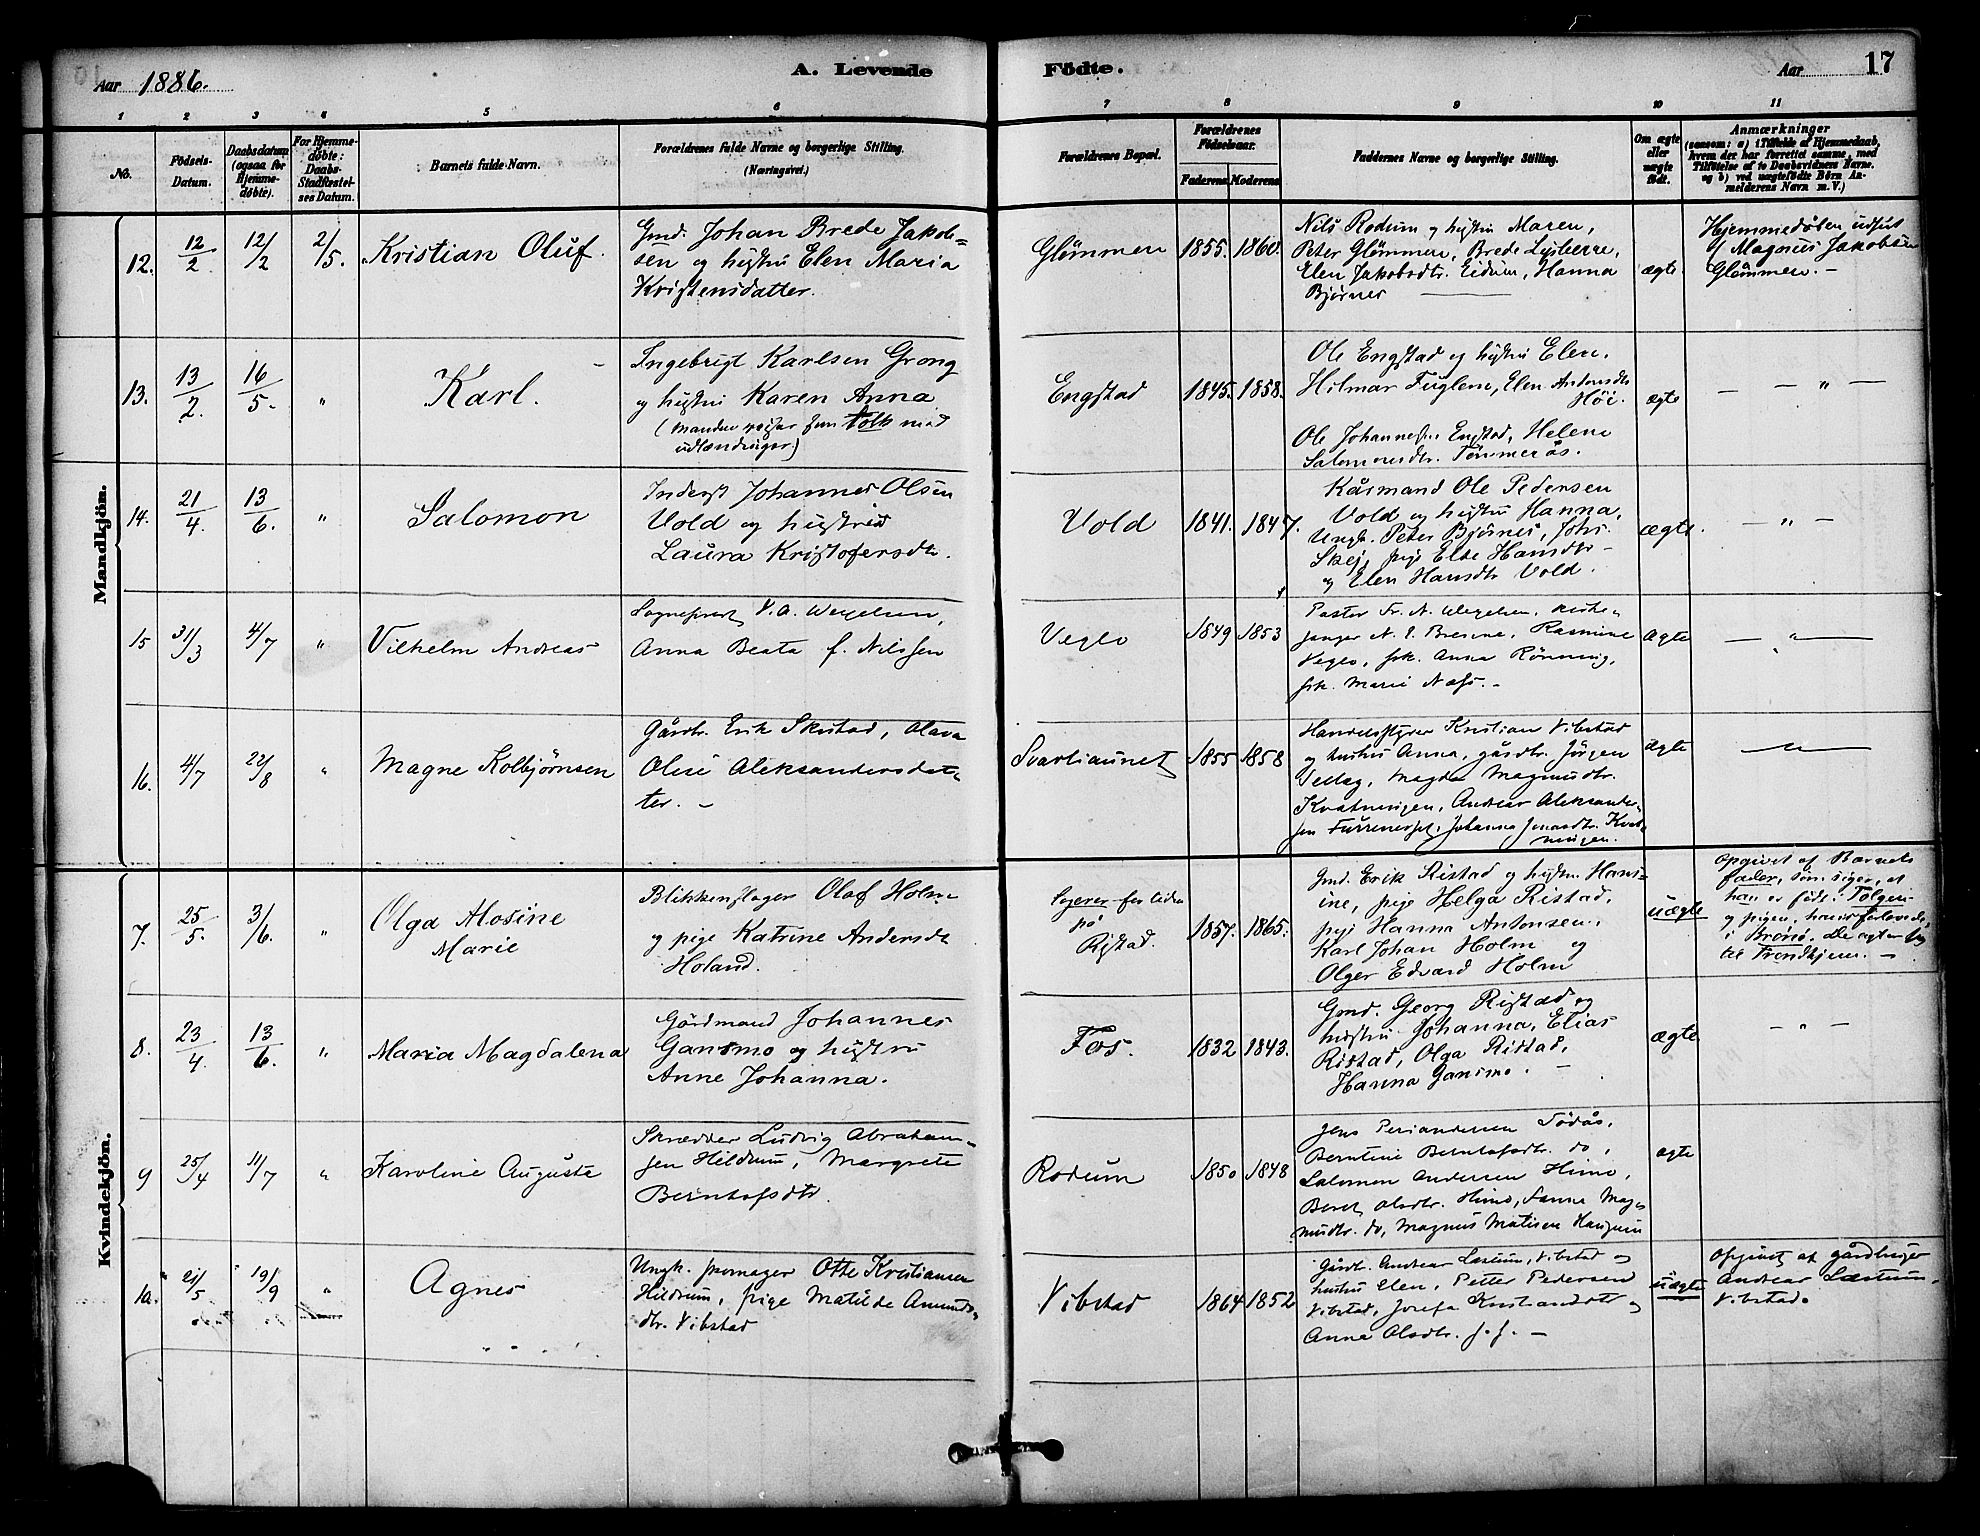 Aar 1886.
A. Levende Födte.
Aar 17
1 2 3 4 5 6 7 8 9 10 11
No.
Födsels-
Datum.
Daabsdatum
(ogsaa for
Hjemme-
døbte).
For Hjemme-
døbte:
Daabs-
Stadfæstel-
ses Datum.
Barnets fulde Navn.
Forældrenes fulde Navne og borgerlige Stilling.
(Næringsvei.)
Forældrenes Bopæl.
Forældrenes
Födselsaar.
Faderens Moderens
Faddernes Navne og borgerlige Stilling.
Om ægte
eller
uægte
født.
Anmærkninger
(saasom: a) i Tilfælde af Hjemmedaab,
hvem der har forrettet samme, med
Tilføielse af to Daabsvidners Navne.
og b) ved uægtefödte Börn An-
melderens Navn m. V.)
Mandkjön.
12. 12/2 12/2 2/5. Kristian Oluf.
Gmd. Johan Brede Jakob-
sen og hustru Elen Maria
Kristensdatter.
Glömmen 1855. 1860.
Nils Rodum og hustru Maren,
Peter Glömmen, Brede
Elen Jakobsdtr. Eidum, Hanna
Bjørner
ægte
Hjemmedøben udført
af Magnus Jakobsen
Glömmen. -
13. 13/2. 16/5. " Karl.
Ingebrigt Karlsen Grong
og hustru Karen Anna
(Manden reiser som tolk med
udlændinger)
Engstad 1845. 1858.
Ole Engstad og hustru Elen,
Hilmar Fuglem, Elen Antonsdtr
Höi.
Ole Engstad, Helene
Salomonsdtr. Tömmerås.
ægte
— — " —
14. 21/4. 13/6. " Salomon
Inderst Johannes Olsen
Vold og hustru
Laura Kristofersdtr.
Vold 1841. 1847.
Kårmand Ole Pedersen
Vold og hustru Hanna,
Ungk. Peter Bjørnes, Johs.
Skej, pige Else Hansdtr
og Elen Hansdtr Vold.
ægte.
— " —
15 31/3 4/7 " Vilhelm Andreas
Sogneprest V. A. Wexelsen,
Anna Beata f. Nilssen
Veglo 1849 1853
Pastor Fr. N. Wexelsen, kirke-
sanger N. Rasmine
Veglo, frk. Anna Rönning,
frk. Marie Næss. -
Ægte
— " —
16. 4/7 22/8 " Magne Kolbjørnsen
Gårdbr. Erik Skistad, Olava
Olise Aleksandersdat-
ter. -
Svartiaunet 1855 1858
Handelsstyrer Kristian Vibstad
og hustru Anna, gårdbr. Jörgen
Magda Magnusdtr.
Kvatningen, Andreas Aleksander-
sen Johanna Jonasdtr. Kvat-
ningen.
Ægte
— " —
Kvindekjön.
7. 25/5. 3/6. " Olga Alosine
Marie
Blikkenslager Olaf Holm
og pige Katrine Andersdtr
Holand.
Logerer for tiden
på
Ristad.
1857. 1865.
Gmd. Erik Ristad og hustru Hans-
ine, pige Helga Ristad,
pige Hanna Antonsen,
Karl Johan Holm og
Olger Edvard Holm
uægte
Opgivet af Barnets
fader, som siger, at
han er föde i Tolgen
og pigen, hans forlovede,
i Brönö. De agter sig
til Trondhjem. -
8. 23/4. 13/6. " Maria Magdalena
Gårdmand Johannes
Gansmo og hustru
Anne Johanna.
Fos. 1832 1843.
Gmd. Georg Ristad og
hustru Johanna, Elias
Ristad, Olga Ristad,
Hanna Gansmo. -
ægte
— " —
9 25/4 11/7 " Karoline Auguste
Skrædder Ludvig Abraham-
sen Hildrum, Margrete
Berntofsdtr.
Rodum 1850 1848
Jens Södås,
Berntine Berntofsdtr. do,
Salomon Andersen Himo,
Beret Olsdtr. Himo, Fanne Mag-
nusdtr. do, Magnus Matisen
ægte
10. 21/5 19/9 " Agnes
Ungk. Otte Kristiansen
Hildrum, pige Matilde Amunds-
dtr. Vibstad
Vibstad 1864 1852
Gårdbr. Andreas Vibstad og
hustru Elen, Petter Pedersen
Vibstad, Josefa Kristiansdtr og
Anne Olsdtr. —
uægte
Opgivet af gårdbruger
Andreas
Vibstad.